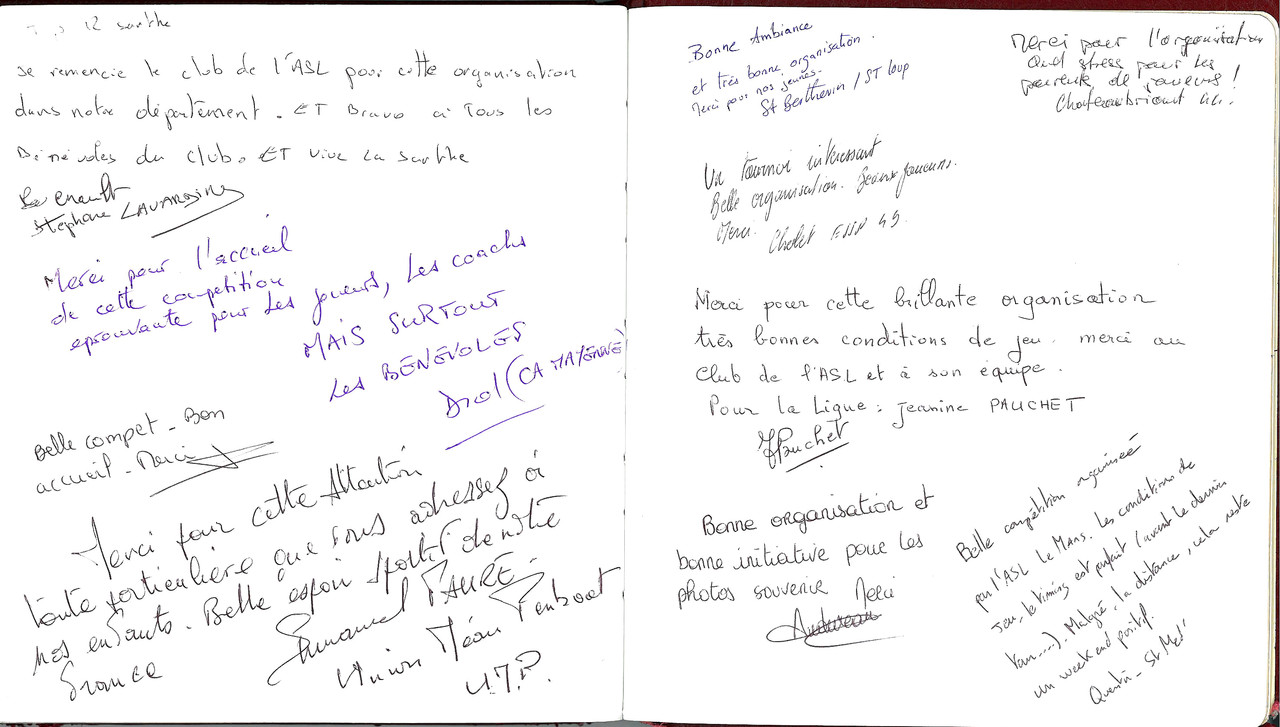 12 sarthe
Je remercie le club de l'ASL pour cette organisation
dans notre département. ET Bravo à Tous les
Bénévoles du club. ET vive La Sarthe
Stéphane
Merci pour l'accueil
de cette compétition
eprouvante pour Les joueurs, Les coachs
MAIS SURTOUT
Les BÉNÉVOLES
(CA MAYENNE)
Belle compet - Bon
accueil - Merci
Merci pour cette Attention
toute particulière que vous adressez à
nos enfants. Belle espoir sportif de notre
France
Emmanuel FAURE -
Union Méan Penhoet
U.M.P.
Bonne Ambiance
et très bonne organisation.
Merci pour nos jeunes.
St Berthevin / ST Loup
Merci pour l'organisation
Quel stress pour les
parents de joueurs !
Chateaubriant
Un Tournoi intéressant
Belle organisation. Beaux joueurs.
Merci. Cholet 49.
Merci pour cette brillante organisation
très bonnes conditions de jeu. merci au
Club de l'ASL et à son équipe.
Pour la Ligue : Jeanine PAUCHET
JPauchet
Bonne organisation et
bonne initiative pour les
photos souvenir Merci
Belle compétition organisée
par l'ASL Le Mans. Les conditions de
jeu, le timing est parfait (avant le dernier
). Malgré la distance, cela reste
un week end positif.
Quentin - St Med'